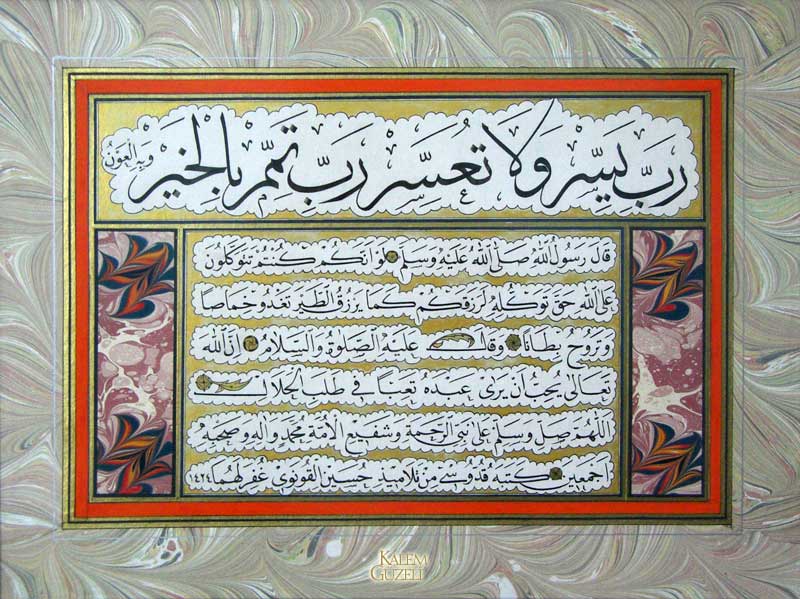 رَبِّ يَسِّرْ وَلَا تُعَسِّرْ رَبِّ تَمِّمْ بِالْخَيْرِ وَبِهِ الْعَوْنُ
قَالَ رَسُولُ اللّٰهِ صَلَّى اللّٰهُ عَلَيْهِ وَسَلَّمَ لَوْ اَنَّكُمْ كُنْتُمْ تَتَوَكَّلُونَ
عَلَى اللّٰهِ حَقَّ تَوَكُّلِهِ لَرَزَقَكُمْ كَمَا يَرْزُقُ الطَّيْرَ تَغْدُو خِمَاصًا
وَتَرُوحُ بِطَانًا وَقَالَ عَلَيْهِ الصَّلٰوةُ وَالسَّلَامُ اِنَّ اللّٰهَ
تَعَالٰى يُحِبُّ اَنْ يَرٰى عَبْدَهُ تَعِبًا فِي طَلَبِ الْحَلَالِ
اَللّٰهُمَّ صَلِّ وَسَلِّمْ عَلٰى نَبِيِّ الرَّحْمَةِ وَشَفِيعِ الْاُمَّةِ مُحَمَّدٍ وَاٰلِهِ وَصَحْبِهِ
اَجْمَعِينَ كتبه قدوسى من تلاميذ حسين القونوى غفر لهما ١٤٢٤
KALEM
GÜZELİ